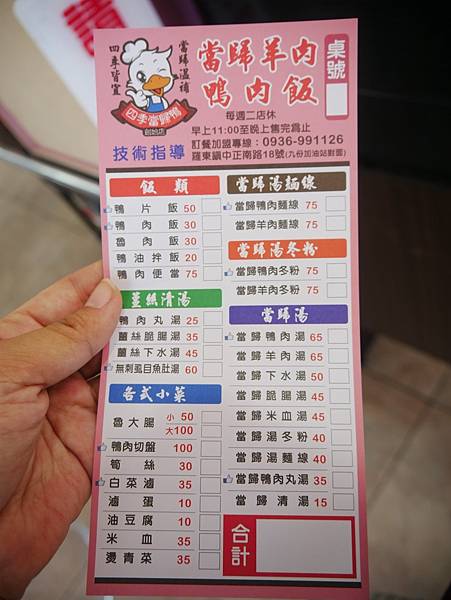 當歸溫補
四季皆宜
四季當歸鴨
創始店
技術指導
當歸羊肉
鴨肉飯
桌號
每週二店休
早上11:00至晚上售完為止
訂餐加盟專線：0936-991126
羅東鎮中正南路18號(九份加油站對面)
飯類
鴨片飯 50
鴨肉飯 30
魯肉飯 30
鴨油拌飯 20
鴨肉便當 75
薑絲清湯
鴨肉丸湯 25
薑絲脆腸湯 35
薑絲下水湯 45
無刺虱目魚肚湯 60
各式小菜
魯大腸 小 50
大100
鴨肉切盤 100
筍絲 30
白菜滷 35
滷蛋 10
油豆腐 10
米血 35
燙青菜 35
當歸湯麵線
當歸鴨肉麵線 75
當歸羊肉麵線 75
當歸湯冬粉
當歸鴨肉冬粉 75
當歸羊肉冬粉 75
當歸湯
當歸鴨肉湯 65
當歸羊肉湯 65
當歸下水湯 50
當歸脆腸湯 45
當歸米血湯 45
當歸湯冬粉 40
當歸湯麵線 40
當歸鴨肉丸湯 35
當歸清湯 15
合計